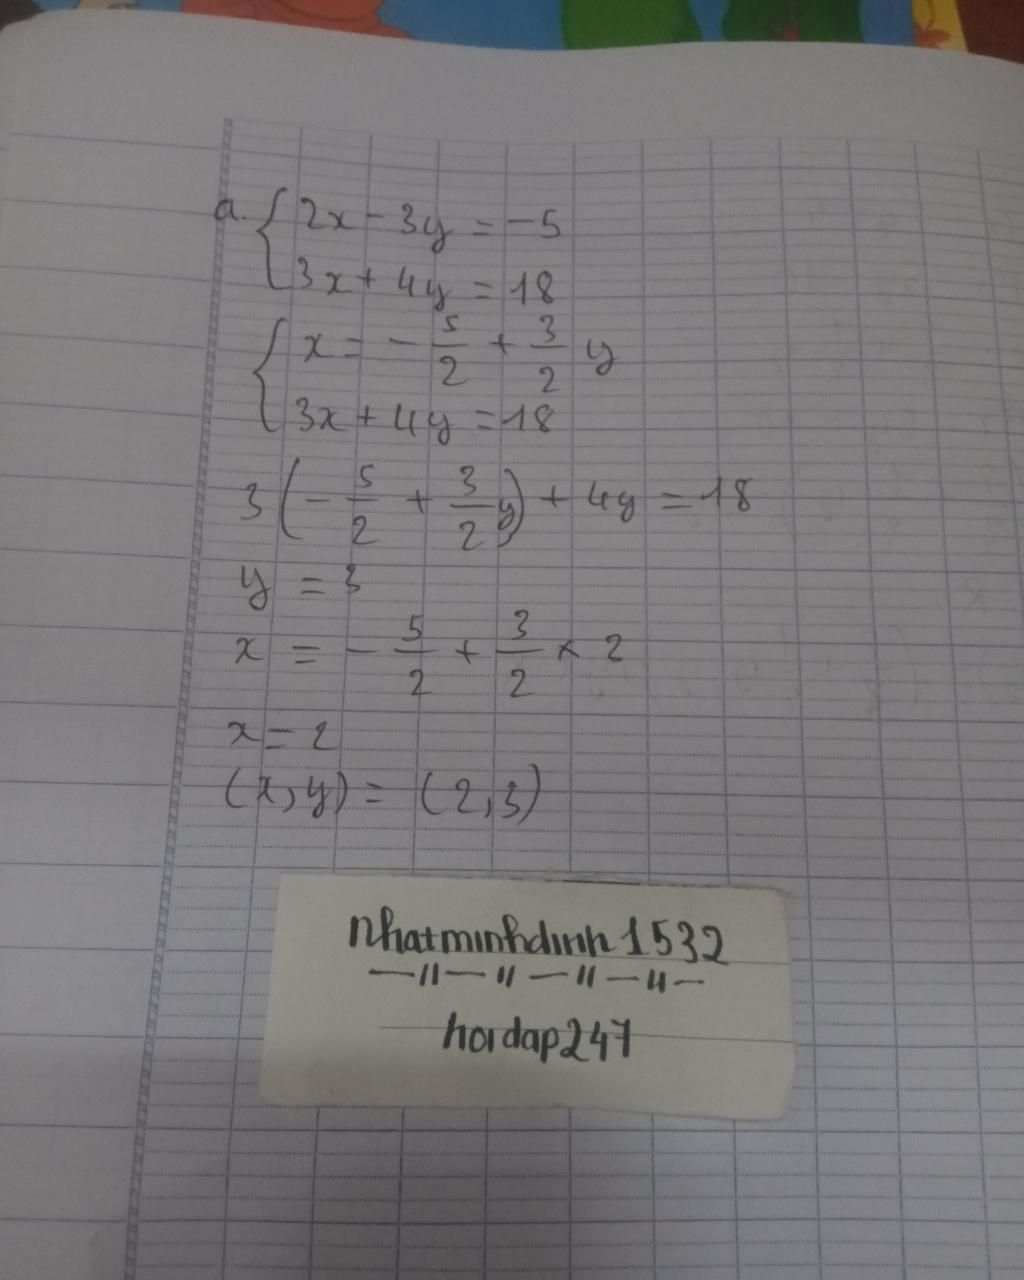 a. { 2x - 3y = -5
3x + 4y = 18
{ x = - 5/2 + 3/2 y
3x + 4y = 18
3 ( - 5/2 + 3/2 y ) + 4y = 18
y = 3
x = - 5/2 + 3/2 × 2
x = 2
(x, y) = (2, 3)
nhatminhdinh1532
— 11 — 11 — 11 — 11 —
hoidap247